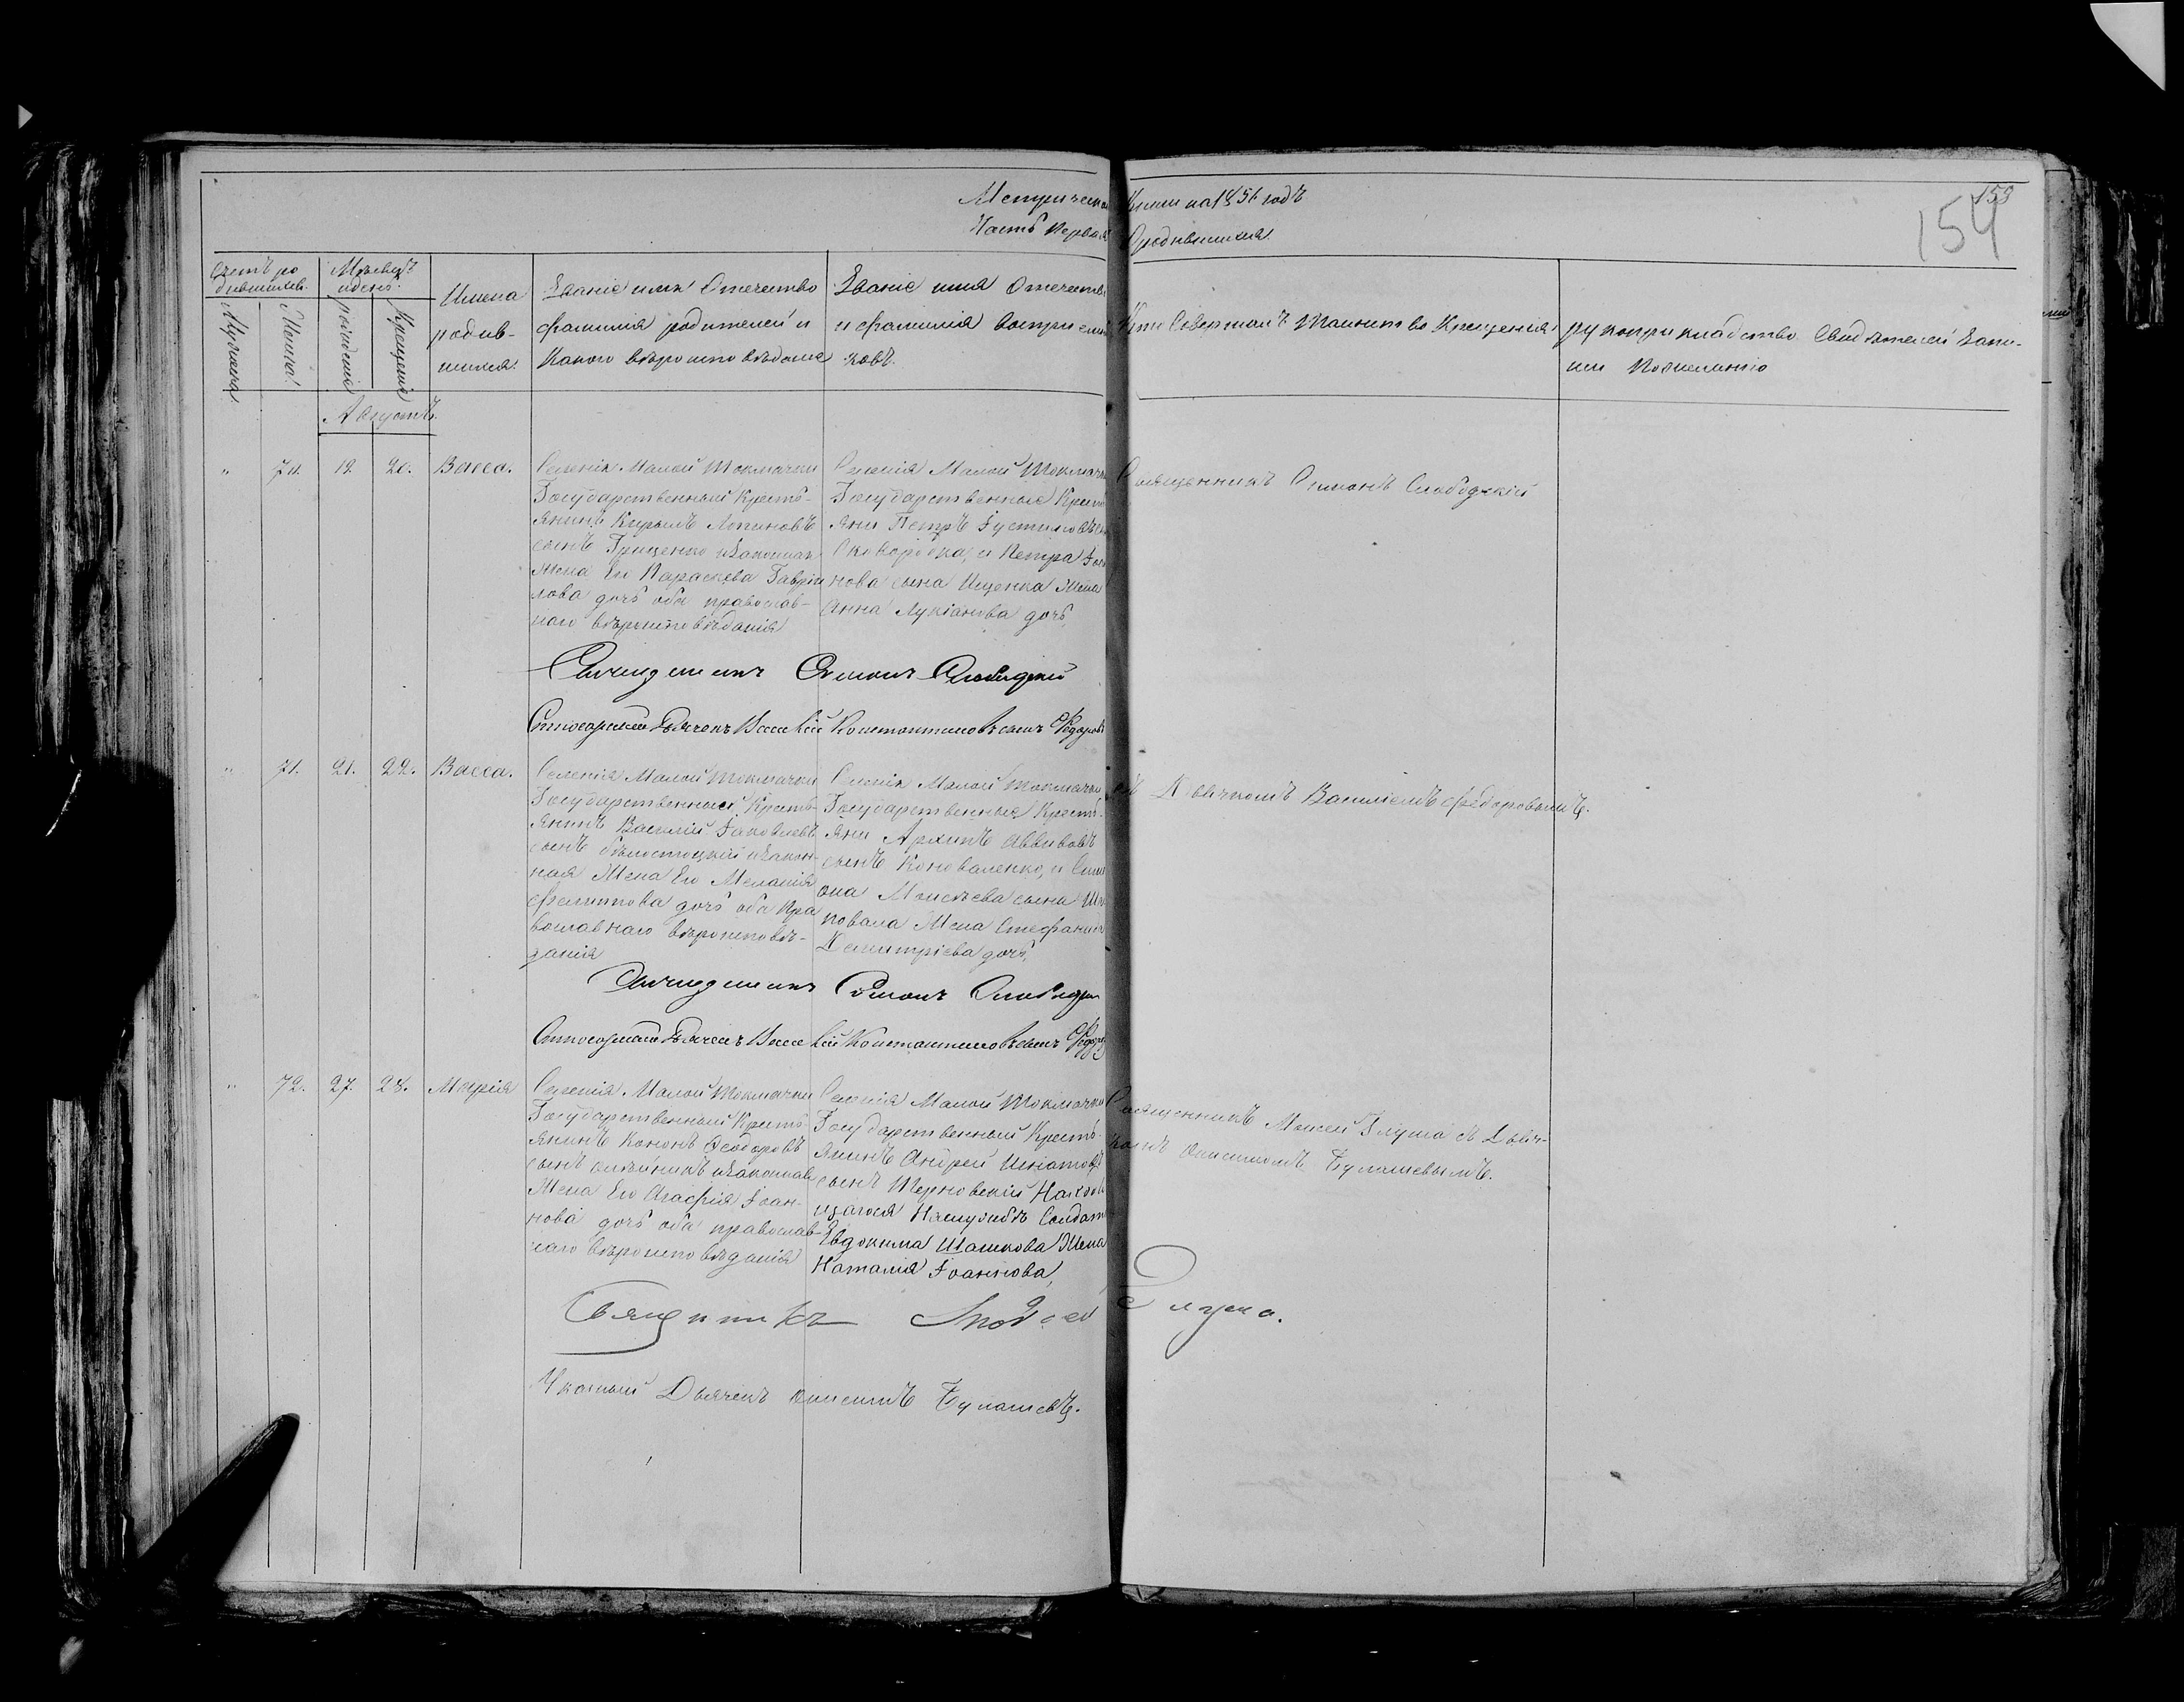 Метрической Книги на 1851 годъ
153
154
Часть Первая О родившихся.
Счетъ родившихся.
Мужеска
Женска
Мѣсяцъ и день.
рожденія
Крещенія
Имена родившихся.
Званіе имя Отечество
фамилія родителей и
какого вѣроисповѣданія
Званіе имя Отечество
и фамилія воспріемни-
ковъ.
Кто Совершалъ Таинство Крещенія
рукоприкладство Свидѣтелей Запи-
си По желанію
Августъ.
"
70.
19.
20.
Васса.
Селенія Малой Токмачки
Государственный Кресть-
янинъ Кирилъ Логиновъ
сынъ Гриценко и законная
жена Его Параскева Гаврiи-
лова дочь оба православ-
наго вѣроисповѣданія
Селенія Малой Токмачки
Государственные Кресть-
яни Петръ Іустиновъ
Сковородка, и Петра
нова сына Ищенка Жена
Анна Лукіанова дочь,
Священникъ Симонъ Слободскій
Священникъ Симонъ Слободскій
Дьячекъ Василій Константиновъ сынъ Федоровъ
"
71.
21.
22.
Васса.
Селенія Малой Токмачки
Государственный Кресть-
янинъ Василій Іаковлевъ
сынъ бѣлостоцкій и Закон-
ная Жена Его Меланія
Филиппова дочь оба Пра-
вославнаго вѣроисповѣ-
данія
Селенія Малой Токмачки
Государственныя Кресть-
яни Архипъ Аввивовъ
сынъ Коноваленко, и Сим-
она Моисѣева сына
Жена Стефанида
Димитріева дочь,
съ Дьячкомъ Василіемъ Федоровымъ.
Священникъ Симонъ
Дьячекъ Василій Константиновъ сынъ
"
72.
27.
28.
Марія
Селенія Малой Токмачки
Государственный Кресть-
янинъ Кононъ Ѳеодоровъ
сынъ и законная
Жена Его Агафія Іоан-
нова дочь оба православ-
наго вѣроисповѣданія
Селенія Малой Токмачки
Государственный Кресть-
янинъ Андрей Игнатовъ
сынъ Терновскій Находя-
щагося На службѣ Солдата
Евдокима Шашкова Жена
Наталія Іоаннова,
Священникъ Моисей Глуша съ Дьяч-
комъ Онисимомъ Булашевымъ.
Священникъ Моисей Глуша.
Указный Дьячекъ Онисимъ Булашевъ.